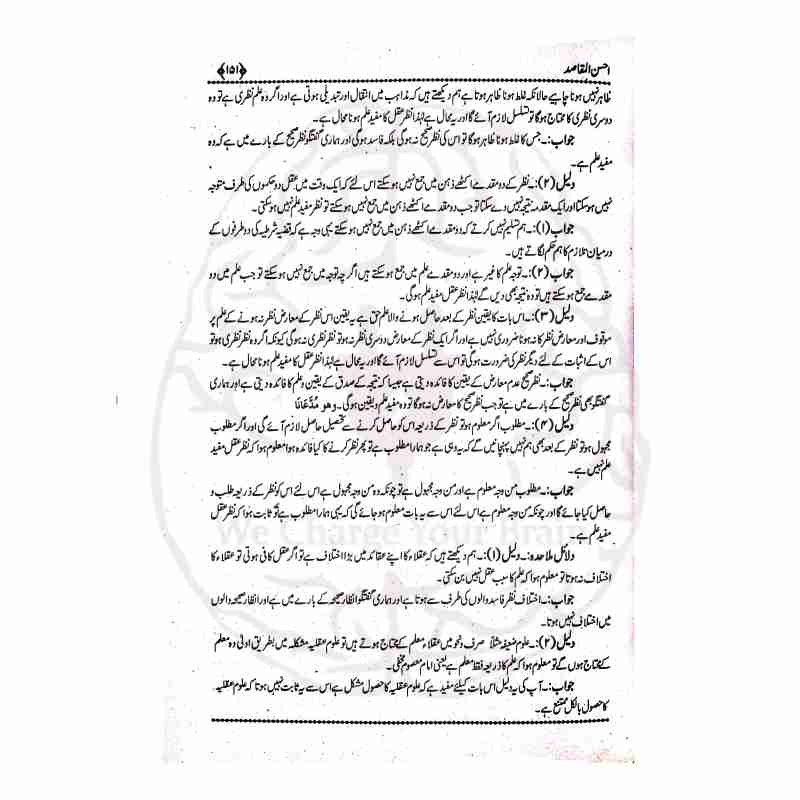 احسن المقاصد
﴿۱۵۱﴾
ظاہر نہیں ہونا چاہیے حالانکہ غلط ہونا ظاہر ہوتا ہے ہم دیکھتے ہیں کہ مذاہب میں انتقال اور تبدیلی ہوتی ہے اور اگر وہ علم نظری ہے تو وہ
دوسری نظری کا محتاج ہوگا تو تسلسل لازم آئے گا اور یہ محال ہے لہٰذا نظر عقل کا مفید علم ہونا محال ہے۔
جواب:۔ جس کا غلط ہونا ظاہر ہوگا تو اس کی نظر صحیح نہ ہوگی بلکہ فاسد ہوگی اور ہماری گفتگو نظر صحیح کے بارے میں ہے کہ وہ
مفید علم ہے۔
دلیل (۲):۔ نظر کے دو مقدمے اکٹھے ذہن میں جمع نہیں ہو سکتے اس لئے کہ ایک وقت میں عقل دو حکموں کی طرف متوجہ
نہیں ہو سکتا اور ایک مقدمہ نتیجہ نہیں دے سکتا تو جب دو مقدمے اکٹھے ذہن میں جمع نہیں ہو سکتے تو نظر مفید علم نہیں ہو سکتی۔
جواب (۱):۔ ہم تسلیم نہیں کرتے کہ دو مقدمے اکٹھے ذہن میں جمع نہیں ہو سکتے یہی وجہ ہے کہ قضیہ شرطیہ کی دو طرفوں کے
درمیان تلازم کا ہم حکم لگاتے ہیں۔
جواب (۲):۔ توجہ علم کا غیر ہے اور دو مقدمے علم میں جمع ہو سکتے ہیں اگرچہ توجہ میں جمع نہیں ہو سکتے تو جب علم میں دو
مقدمے جمع ہو سکتے ہیں تو وہ نتیجہ بھی دیں گے لہٰذا نظر عقل مفید علم ہوگی۔
دلیل (۳):۔ اس بات کا یقین نظر کے بعد حاصل ہونے والا علم حق ہے یہ یقین اس نظر کے معارض نظر نہ ہونے کے علم پر
موقوف اور معارض نظر کا نہ ہونا ضروری نہیں ہے اور اگر ایک نظر کے معارض دوسری نظر نہ ہو تو نظر نظری نہ ہوگی کیونکہ اگر وہ نظر نظری ہو تو
اس کے اثبات کے لئے دیگر نظر کی ضرورت ہوگی تو اس سے تسلسل لازم آئے گا اور یہ محال ہے لہٰذا نظر عقل کا مفید علم ہونا محال ہے۔
جواب:۔ نظر صحیح عدم معارض کے یقین کا فائدہ دیتی ہے جیسا کہ نتیجہ کے صدق کے یقین و علم کا فائدہ دیتی ہے اور ہماری
گفتگو بھی نظر صحیح کے بارے میں ہے تو جب نظر صحیح کا معارض نہ ہوگا تو وہ مفید علم و یقین ہوگی۔ وھو مُدَّعَانَا
دلیل (۴):۔ مطلوب اگر معلوم ہو تو نظر کے ذریعہ اس کو حاصل کرنے سے تحصیل حاصل لازم آئے گی اور اگر مطلوب
مجہول ہو تو نظر کے بعد بھی ہم نہیں پہچانیں گے کہ یہ وہی ہے جو ہمارا مطلوب ہے تو پھر نظر کرنے کا کیا فائدہ ہوا معلوم ہوا کہ نظر عقل مفید
علم نہیں ہے۔
جواب:۔ مطلوب من وجہ معلوم ہے اور من وجہ مجہول ہے تو چونکہ وہ من وجہ مجہول ہے اس لئے اس کو نظر کے ذریعہ طلب و
حاصل کیا جائے گا اور چونکہ من وجہ معلوم ہے اس لئے اس سے یہ بات معلوم ہو جائے گی کہ یہی ہمارا مطلوب ہے تو ثابت ہوا کہ نظر عقل
مفید علم ہے۔
We Charge Your Brain
دلائل ملاحدہ:۔ دلیل (۱):۔ ہم دیکھتے ہیں کہ عقلاء کا اپنے عقائد میں بڑا اختلاف ہے تو اگر عقل کافی ہوتی تو عقلاء کا
اختلاف نہ ہوتا تو معلوم ہوا کہ علم کا سبب عقل نہیں بن سکتی۔
جواب:۔ اختلاف نظر فاسد والوں کی طرف سے ہوتا ہے اور ہماری گفتگو انظار صحیحہ کے بارے میں ہے اور انظار صحیحہ والوں
میں اختلاف نہیں ہوتا۔
دلیل (۲):۔ علوم ضعیفہ مثلاً صرف و نحو میں عقلاء معلم کے محتاج ہوتے ہیں تو علوم عقلیہ مشکلہ میں بطریق اولیٰ وہ معلم
کے محتاج ہوں گے تو معلوم ہوا کہ علم کا ذریعہ فقط معلم ہے یعنی امام معصوم مخفی۔
جواب:۔ آپ کی یہ دلیل اس بات کیلئے مفید ہے کہ علوم عقلیہ کا حصول مشکل ہے اس سے یہ ثابت نہیں ہوتا کہ علوم عقلیہ
کا حصول بالکل ممتنع ہے۔